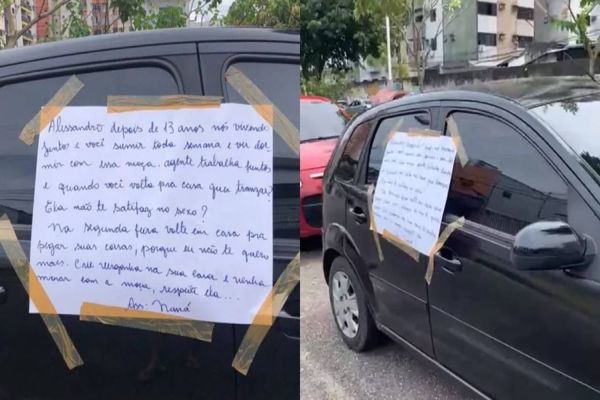 Alissandro depois de 13 anos nós vivendo
juntos e você sumir toda semana e ver dor
mir com essa moça. agente trabalha juntos
e quando você volta pra casa quer transar?
Ela não te satisfaz no sexo?
Na segunda feira volte em casa pra
pegar suas coisas, porque eu não te quero
mais. Crie vergonha na sua cara e venha
morar com a moça, respeite ela...
Ass: Naná